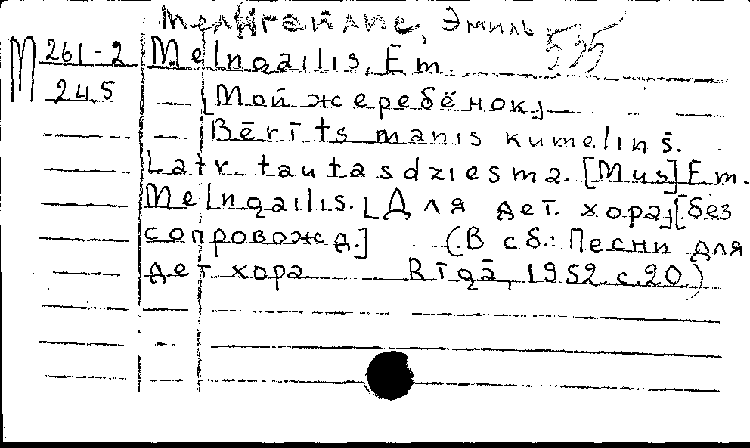 Мелнгайлис, Эмиль
535
М 261-2 Melngailis, Em.
245 [Мой жеребёнок.]
Bērīts manis kumeliņš.
Latv. tautasdziesma. [Mus] Em.
Melngailis. [Для дет. хора] [без
сопровожд.] (В сб.: Песни для
дет хора Rīgā, 1952 с.20.)